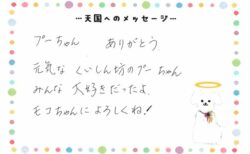 …天国へのメッセージ…
プーちゃん　ありがとう
元気な くいしん坊のプーちゃん
みんな 大好きだったよ
モコちゃんに よろしくね!